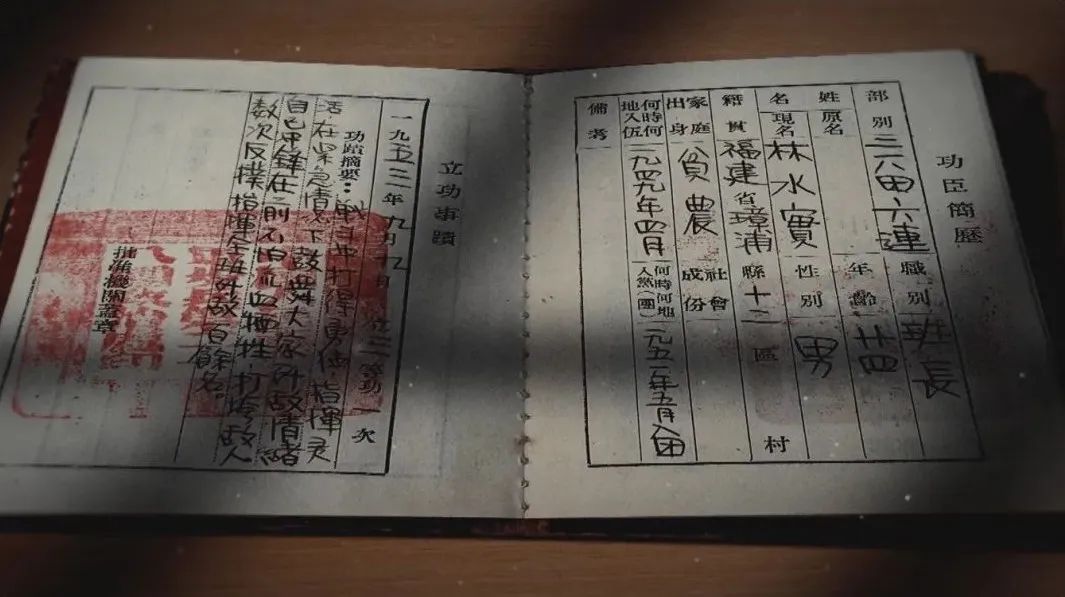 功臣簡歷
部別 六連 職別 班長
姓名 原名 年齡 廿四
現名 林水實 性別 男
籍貫 福建省璋浦縣十二區 村
家庭出身 貧農 社會成份
何時何地入伍 一九四九年四月 何時何地入黨(團) 一九五一年五月入团
備考
立功事蹟
一九五三年九月九日 立三等功一次
功蹟摘要:戰斗中打得勇 指揮灵
活在紧急情况下鼓舞大家歼敌情緒
自己冲鋒在前不怕流血牺牲打垮敌人
数次反撲指揮全班歼敌百餘名。
批准機關蓋章